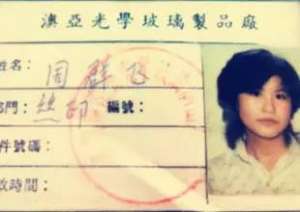 澳亞光學玻璃製品廠
姓名：周群飞
部門：丝印 編號：
件號碼：
效時間：